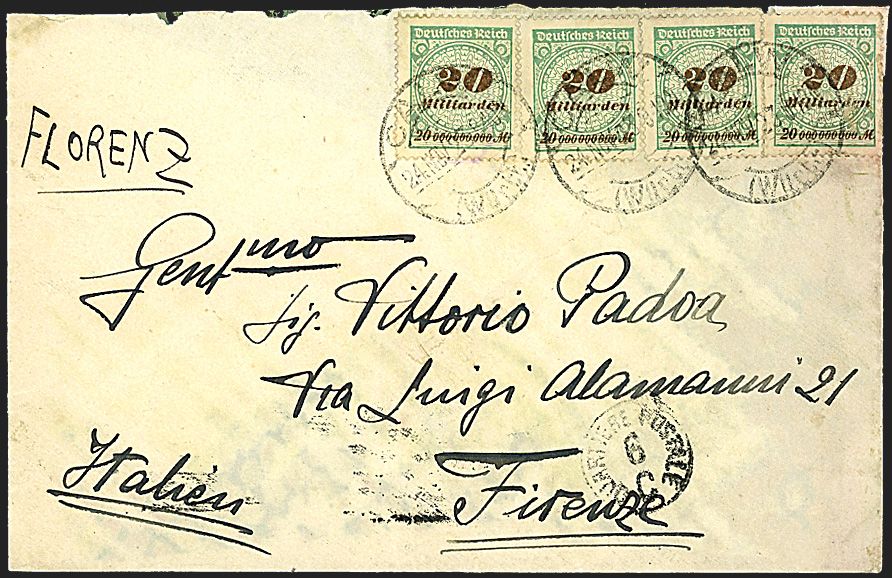 Deutsches Reich Deutsches Reich Deutsches Reich Deutsches Reich
20 20 20 20
Milliarden Milliarden Milliarden Milliarden
20 000 000 000 M 20 000 000 000 M 20 000 000 000 M 20 000 000 000 M
FLORENZ
Gentmo
Sig. Vittorio Padoa
Via Luigi Alamanni 21
Italien
Firenze
6